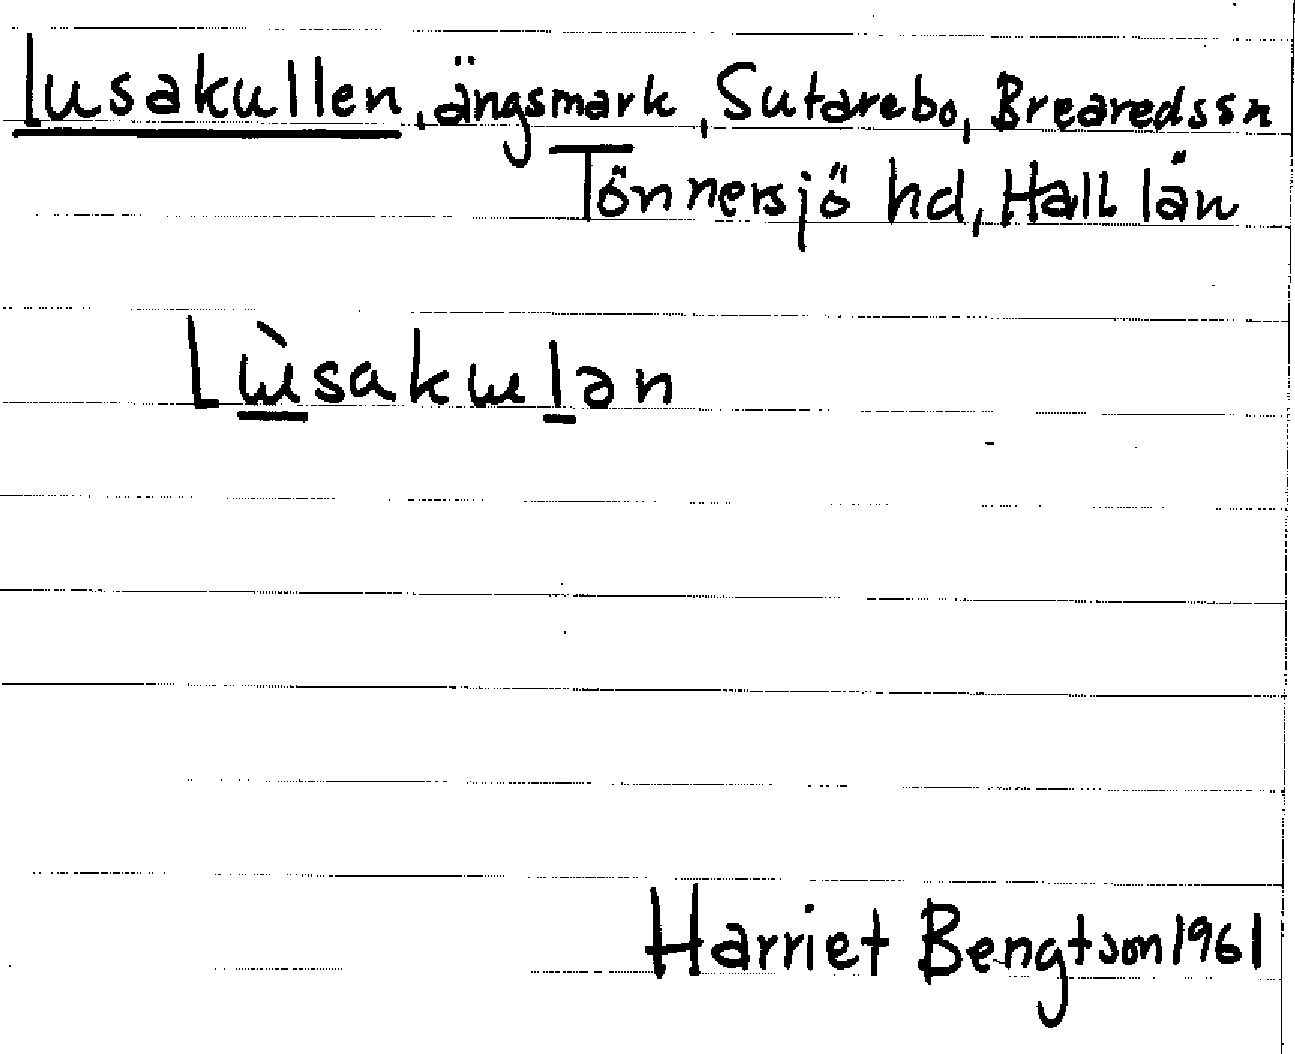 Lusakullen, ängsmark, Sutarebo, Brearedssn
Tönnersjö hd, Hall län
Lɯ̀sakɯlən
Harriet Bengtson 1961